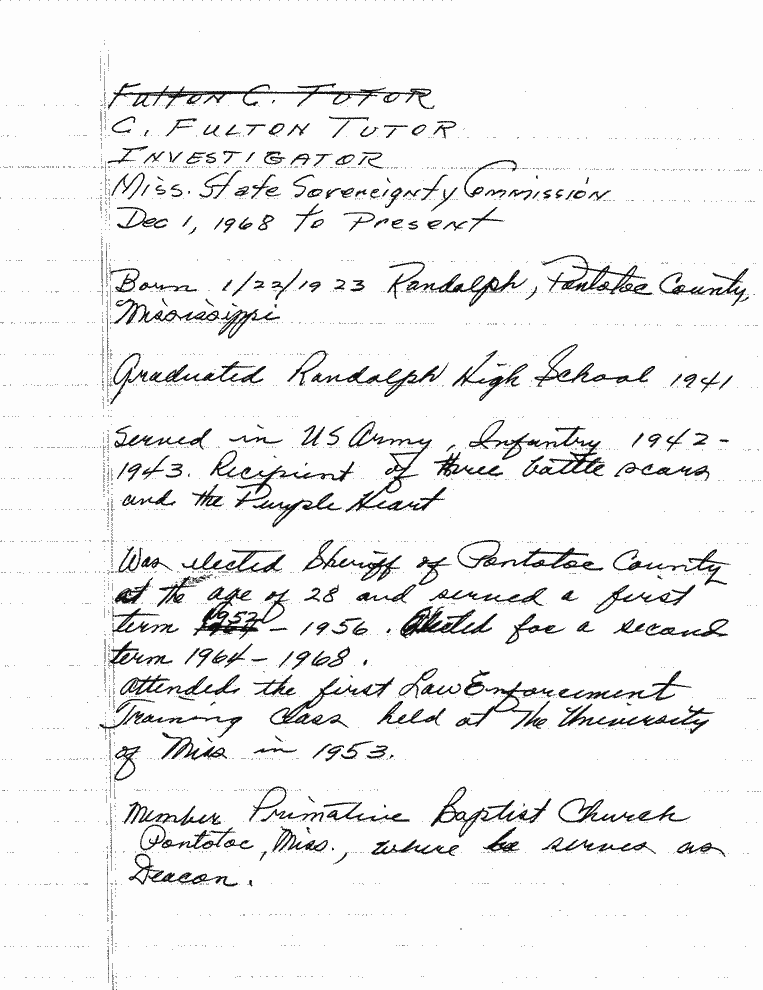 Fulton C. Tutor
C. Fulton Tutor
Investigator
Miss. State Sovereignty Commission
Dec 1, 1968 to Present
Born 1/22/1923 Randolph, Pontotoc County,
Mississippi
Graduated Randolph High School 1941
Served in US Army, Infantry 1942-
1943. Recipient of three battle scars
and the Purple Heart
Was elected Sheriff of Pontotoc County
at the age of 28 and served a first
term 1952 - 1956. Elected for a second
term 1964 - 1968.
Attended the first Law Enforcement
Training Class held at The University
of Miss in 1953.
Member Primative Baptist Church
Pontotoc, Miss., where he serves as
Deacon.